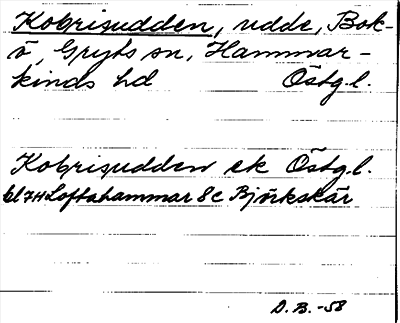 Kobrisudden, udde, Bok-
ö, Gryts sn, Hammar-
kinds hd Östg.l.
Kobrisudden ek Östg.l.
bl 7H Loftahammar 8c Björkskär
D.B.-58